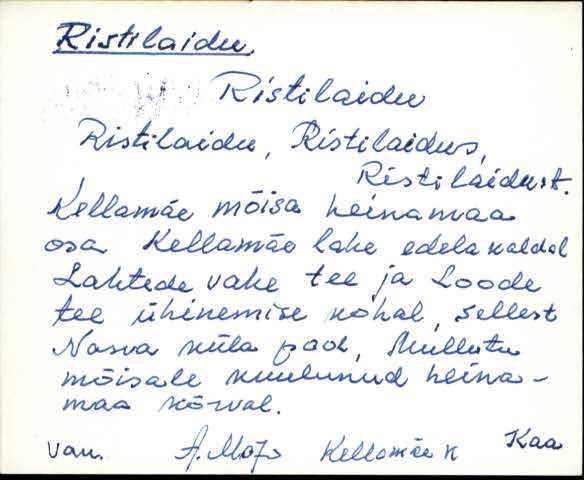 Ristilaidu
Ristilaidu
Ristilaidu, Ristilaidus,
Ristilaidust.
Kellamäe mõisa heinamaa
osa Kellamäe lahe edela kaldal
Lahtede vahe tee ja Loode
tee ühinemise kohal, sellest
Nasva küla pool, Mullutu
mõisale kuulunud heina-
maa kõrval.
van. A. Kellamäe k Kaa